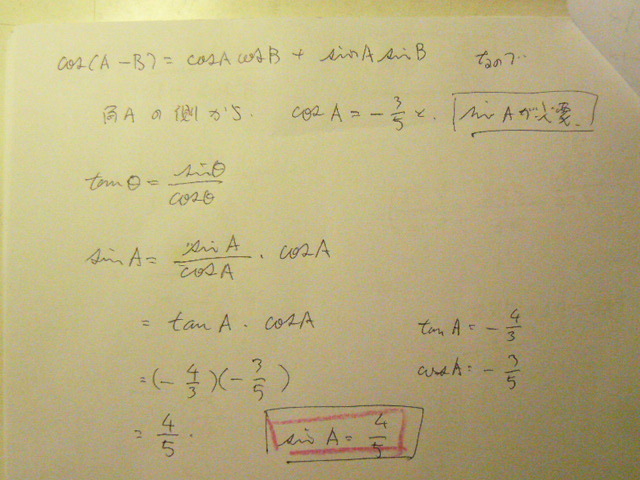 cos(A-B) = cosA cosB + sinA sinB なので
角Aの側から. cosA = -3/5 と. sinAが必要.
tanθ = sinθ/cosθ
sinA = sinA/cosA · cosA
= tanA · cosA
tanA = -4/3
= (-4/3)(-3/5)
cosA = -3/5
= 4/5.
sinA = 4/5